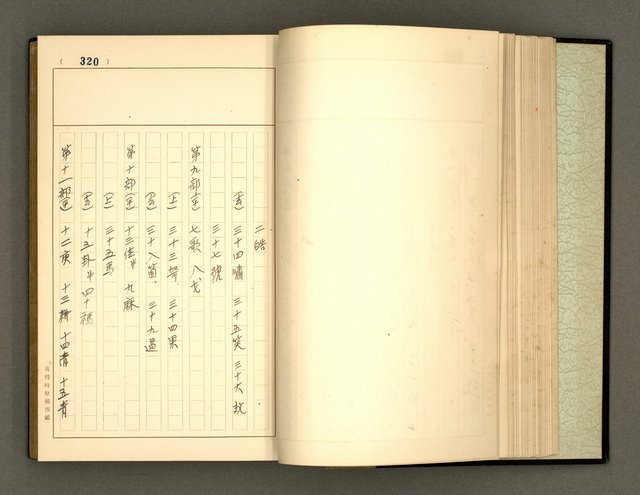 ( 320 )
二皓
(去) 三十四嘯 三十五笑 三十六效
三十七號
第九部(平) 七歌 八戈
(上) 三十三哿 三十四果
(去) 三十八箇 三十九過
第十部(平) 十三佳半 九麻
(上) 三十五馬
(去) 十五卦半 四十禡
第十一部(平) 十二庚 十三耕 十四清 十五青
黃得時原稿用紙